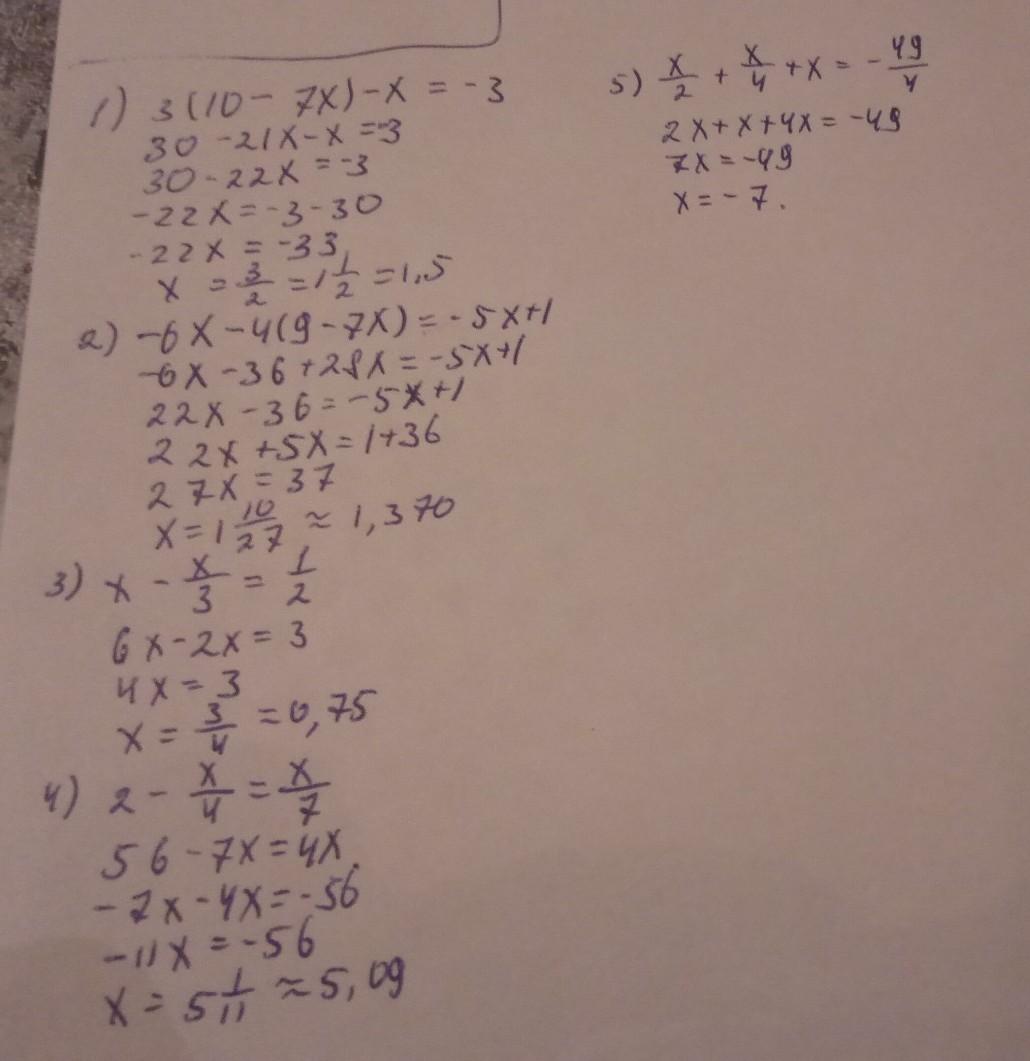 1) 3(10 - 7x) - x = -3
30 - 21x - x = -3
30 - 22x = -3
-22x = -3 - 30
-22x = -33
x = 3/2 = 1 1/2 = 1,5
2) -6x - 4(9 - 7x) = -5x+1
-6x - 36 + 28x = -5x+1
22x - 36 = -5x+1
22x + 5x = 1+36
27x = 37
x = 1 10/27 ≈ 1,370
3) x - x/3 = 1/2
6x - 2x = 3
4x = 3
x = 3/4 = 0,75
4) 2 - x/4 = x/7
56 - 7x = 4x
-7x - 4x = -56
-11x = -56
x = 5 1/11 ≈ 5,09
5) x/2 + x/4 + x = -49/4
2x + x + 4x = -49
7x = -49
x = -7.